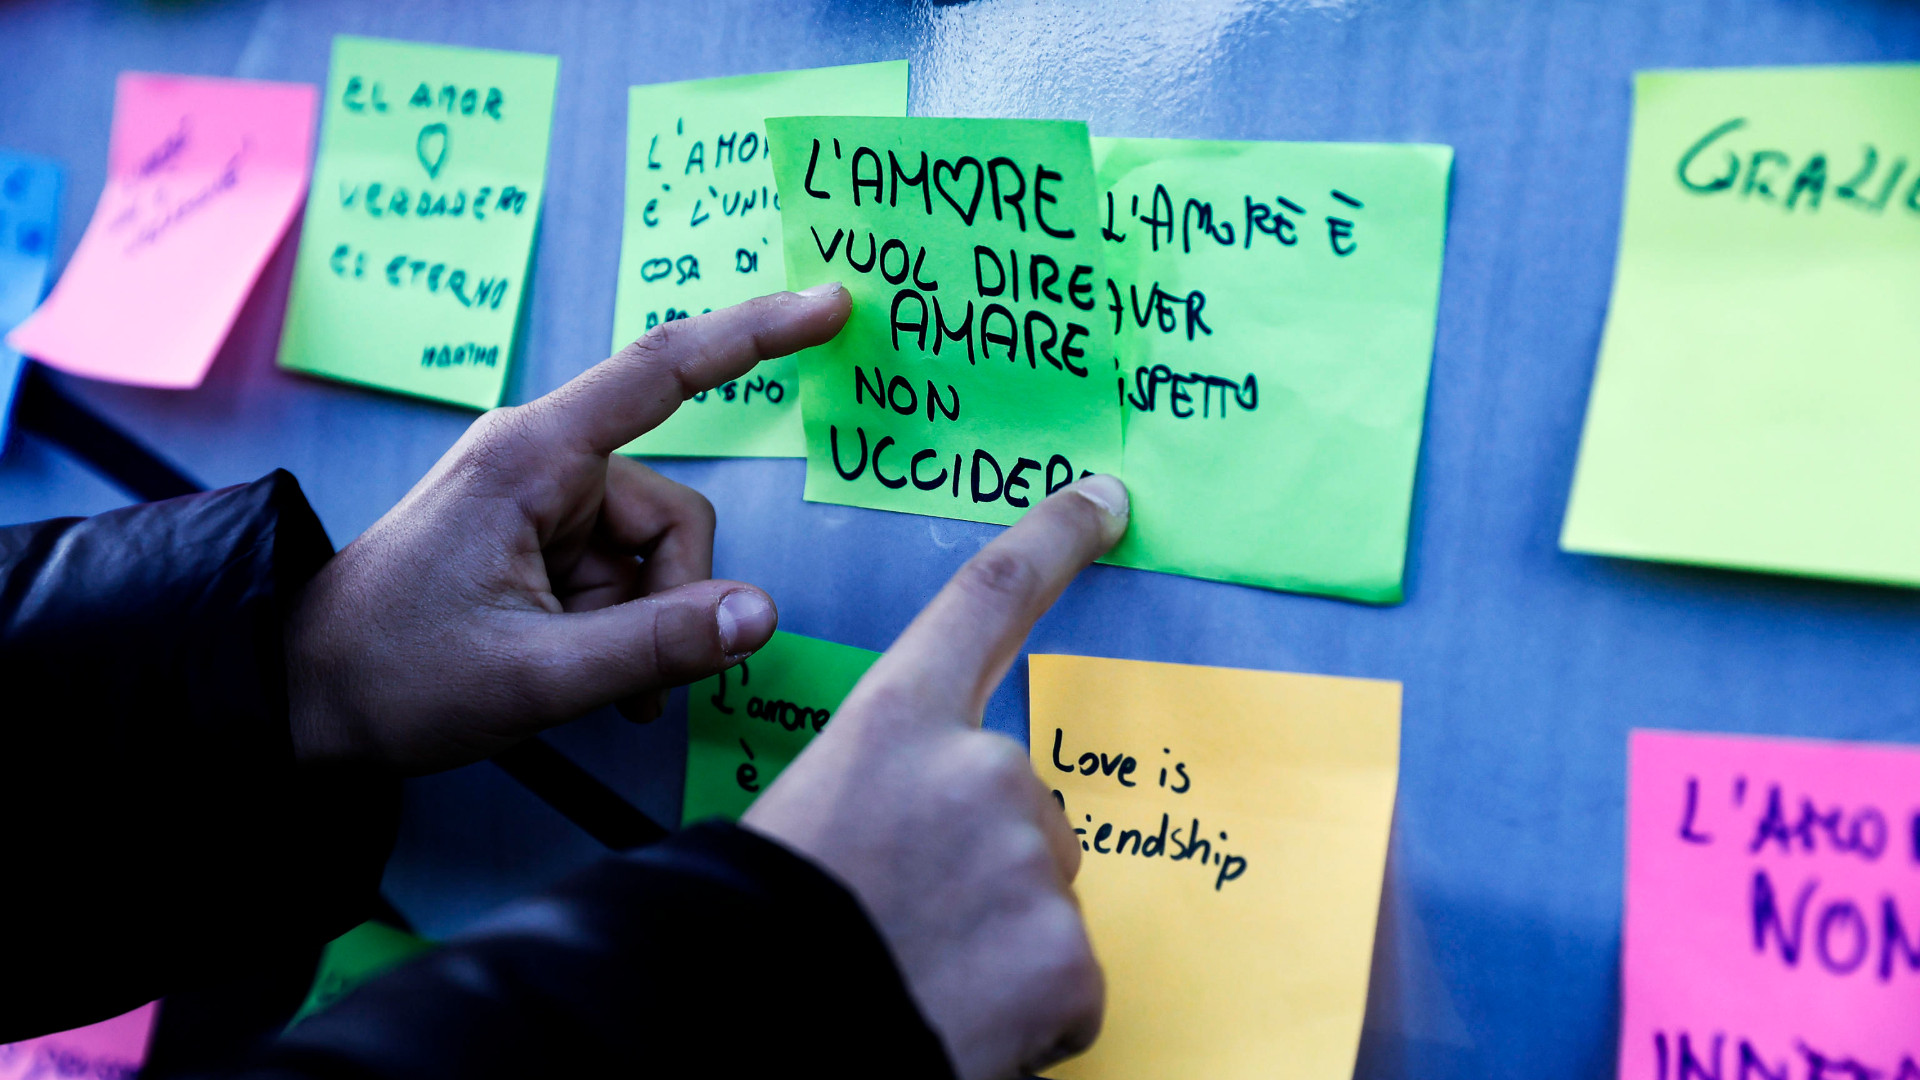 EL AMOR
VERDADERO
ES ETERNO
L'AMO
È L'UNIC
COSA DI
L'AMORE
VUOL DIRE
AMARE
NON
UCCIDERE
L'AMORÈ È
AVER
ISPETTO
GRAZIE
L'amore
è
Love is
iendship
L'AMO
NON